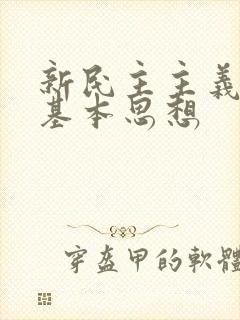 新民主主義
基本思想
穿盔甲的軟體